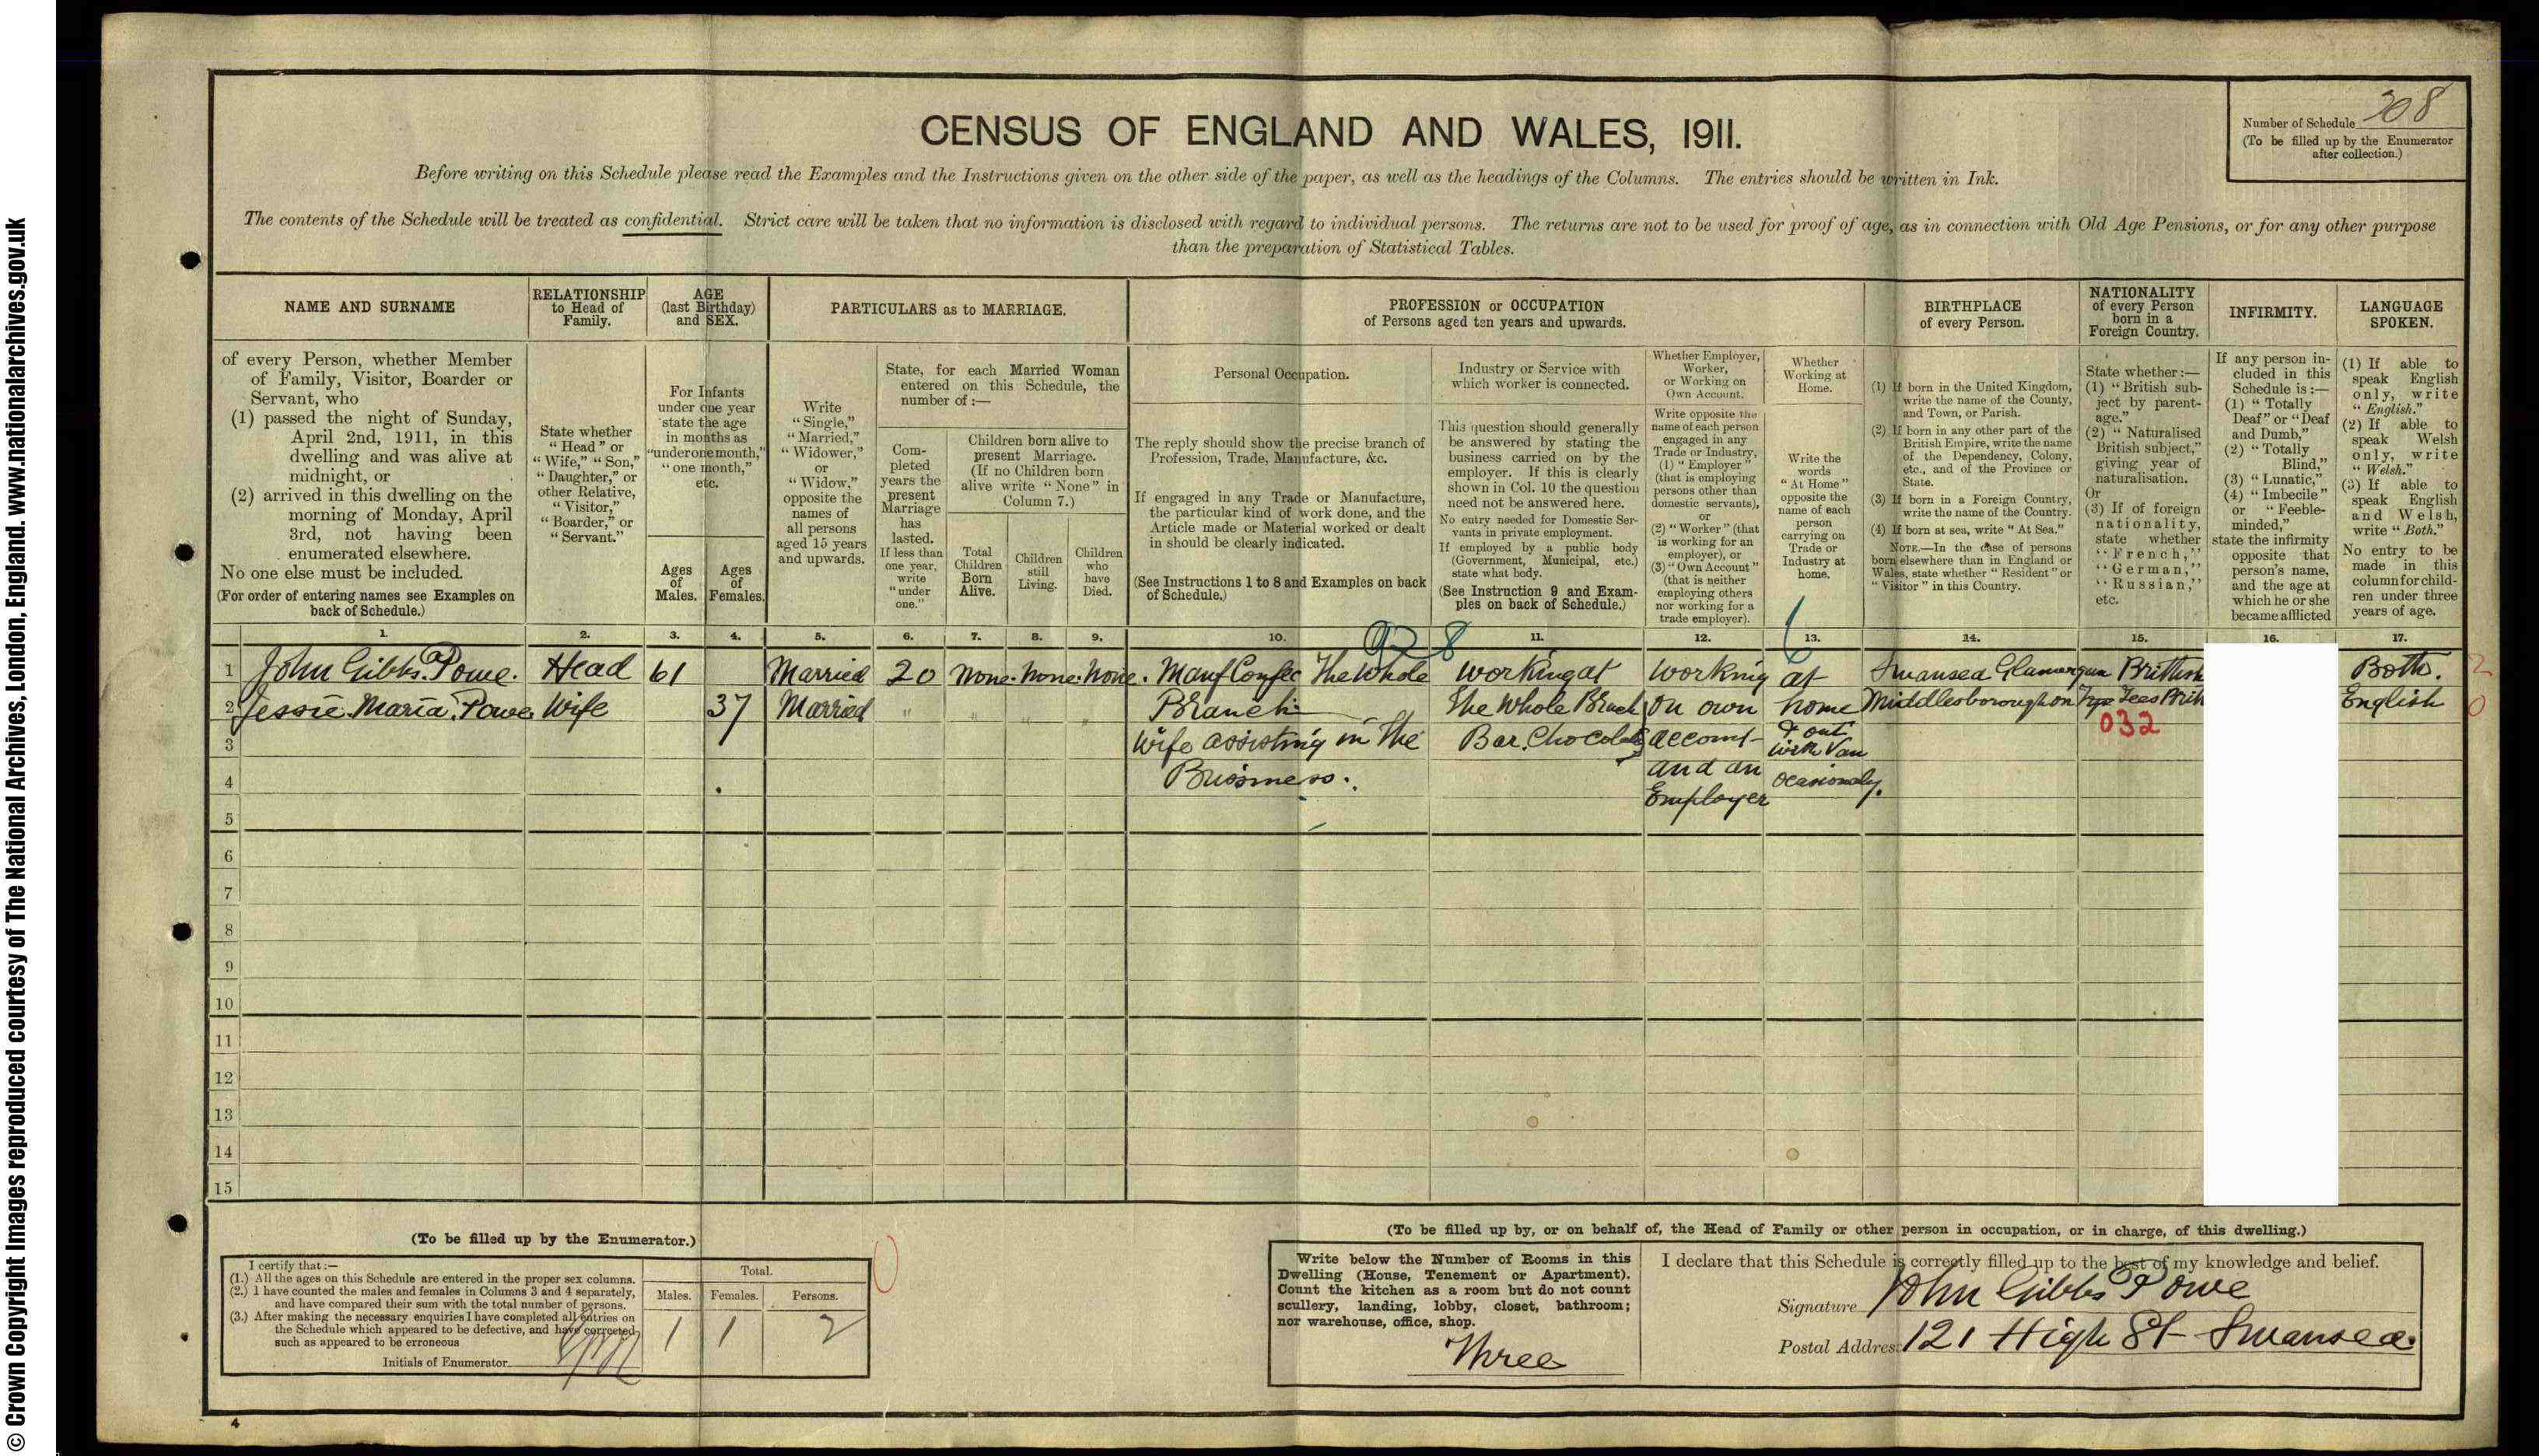 © Crown Copyright Images reproduced courtesy of The National Archives, London, England. www.nationalarchives.gov.uk
Number of Schedule 308
(To be filled up by the Enumerator
after collection.)
CENSUS OF ENGLAND AND WALES, 1911.
Before writing on this Schedule please read the Examples and the Instructions given on the other side of the paper, as well as the headings of the Columns. The entries should be written in Ink.
The contents of the Schedule will be treated as confidential. Strict care will be taken that no information is disclosed with regard to individual persons. The returns are not to be used for proof of age, as in connection with Old Age Pensions, or for any other purpose
than the preparation of Statistical Tables.
NAME AND SURNAME
of every Person, whether Member
of Family, Visitor, Boarder or
Servant, who
(1) passed the night of Sunday,
April 2nd, 1911, in this
dwelling and was alive at
midnight, or
(2) arrived in this dwelling on the
morning of Monday, April
3rd, not having been
enumerated elsewhere.
No one else must be included.
(For order of entering names see Examples on
back of Schedule.)
RELATIONSHIP
to Head of
Family.
State whether
"Head" or
"Wife," "Son,"
"Daughter," or
other Relative,
"Visitor,"
"Boarder," or
"Servant."
AGE
(last Birthday)
and SEX.
For Infants
under one year
state the age
in months as
"under one month,"
"one month,"
etc.
Ages
of
Males.
Ages
of
Females.
PARTICULARS as to MARRIAGE.
Write
"Single,"
"Married,"
"Widower,"
or
"Widow,"
opposite the
names of
all persons
aged 15 years
and upwards.
State, for each Married Woman
entered on this Schedule, the
number of :—
Com-
pleted
years the
present
Marriage
has
lasted.
If less than
one year,
write
"under
one."
Children born alive to
present Marriage.
(If no Children born
alive write "None" in
Column 7.)
Total
Children
Born
Alive.
Children
still
Living.
Children
who
have
Died.
PROFESSION or OCCUPATION
of Persons aged ten years and upwards.
Personal Occupation.
The reply should show the precise branch of
Profession, Trade, Manufacture, &c.
If engaged in any Trade or Manufacture,
the particular kind of work done, and the
Article made or Material worked or dealt
in should be clearly indicated.
(See Instructions 1 to 8 and Examples on back
of Schedule.)
Industry or Service with
which worker is connected.
This question should generally
be answered by stating the
business carried on by the
employer. If this is clearly
shown in Col. 10 the question
need not be answered here.
No entry needed for Domestic Ser-
vants in private employment.
If employed by a public body
(Government, Municipal, etc.)
state what body.
(See Instruction 9 and Exam-
ples on back of Schedule.)
Whether Employer,
Worker,
or Working on
Own Account.
Write opposite the
name of each person
engaged in any
Trade or Industry,
(1) "Employer"
(that is employing
persons other than
domestic servants),
or
(2) "Worker" (that
is working for an
employer), or
(3) "Own Account"
(that is neither
employing others
nor working for a
trade employer).
Whether
Working at
Home.
Write the
words
"At Home"
opposite the
name of each
person
carrying on
Trade or
Industry at
home.
BIRTHPLACE
of every Person.
(1) If born in the United Kingdom,
write the name of the County,
and Town, or Parish.
(2) If born in any other part of the
British Empire, write the name
of the Dependency, Colony,
etc., and of the Province or
State.
(3) If born in a Foreign Country,
write the name of the Country.
(4) If born at sea, write "At Sea."
NOTE.—In the case of persons
born elsewhere than in England or
Wales, state whether "Resident" or
"Visitor" in this Country.
NATIONALITY
of every Person
born in a
Foreign Country.
State whether :—
(1) "British sub-
ject by parent-
age."
(2) "Naturalised
British subject,"
giving year of
naturalisation.
Or
(3) If of foreign
nationality,
state whether
"French,"
"German,"
"Russian,"
etc.
INFIRMITY.
If any person in-
cluded in this
Schedule is :—
(1) "Totally
Deaf" or "Deaf
and Dumb,"
(2) "Totally
Blind,"
(3) "Lunatic,"
(4) "Imbecile"
or "Feeble-
minded,"
state the infirmity
opposite that
person's name,
and the age at
which he or she
became afflicted
LANGUAGE
SPOKEN.
(1) If able to
speak English
only, write
"English."
(2) If able to
speak Welsh
only, write
"Welsh."
(3) If able to
speak English
and Welsh,
write "Both."
No entry to be
made in this
column for child-
ren under three
years of age.
1. 2. 3. 4. 5. 6. 7. 8. 9. 10. 11. 12. 13. 14. 15. 16. 17.
928 6
1 John Gibbs Powe. Head 61 Married 20 None. None. None. Manf Confec The Whole working at working at Swansea Glamorgan Brittish Both. 2
2 Jessie Maria Powe Wife 37 Married " " " " Branch The Whole Branch on own home Middlesborough on Tees Brith English 0
3 Wife assisting in The Bar. Chocolate account & out with Van 032
4 Buisiness. and an ocasionaly.
5 Employer
6
7
8
9
10
11
12
13
14
15
(To be filled up by the Enumerator.)
I certify that :—
(1.) All the ages on this Schedule are entered in the proper sex columns.
(2.) I have counted the males and females in Columns 3 and 4 separately,
and have compared their sum with the total number of persons.
(3.) After making the necessary enquiries I have completed all entries on
the Schedule which appeared to be defective, and have corrected
such as appeared to be erroneous
Initials of Enumerator
Total.
Males. Females. Persons.
1 1 2
0
(To be filled up by, or on behalf of, the Head of Family or other person in occupation, or in charge, of this dwelling.)
Write below the Number of Rooms in this
Dwelling (House, Tenement or Apartment).
Count the kitchen as a room but do not count
scullery, landing, lobby, closet, bathroom;
nor warehouse, office, shop.
Three
I declare that this Schedule is correctly filled up to the best of my knowledge and belief.
Signature John Gibbs Powe
Postal Address 121 High St Swansea.
4